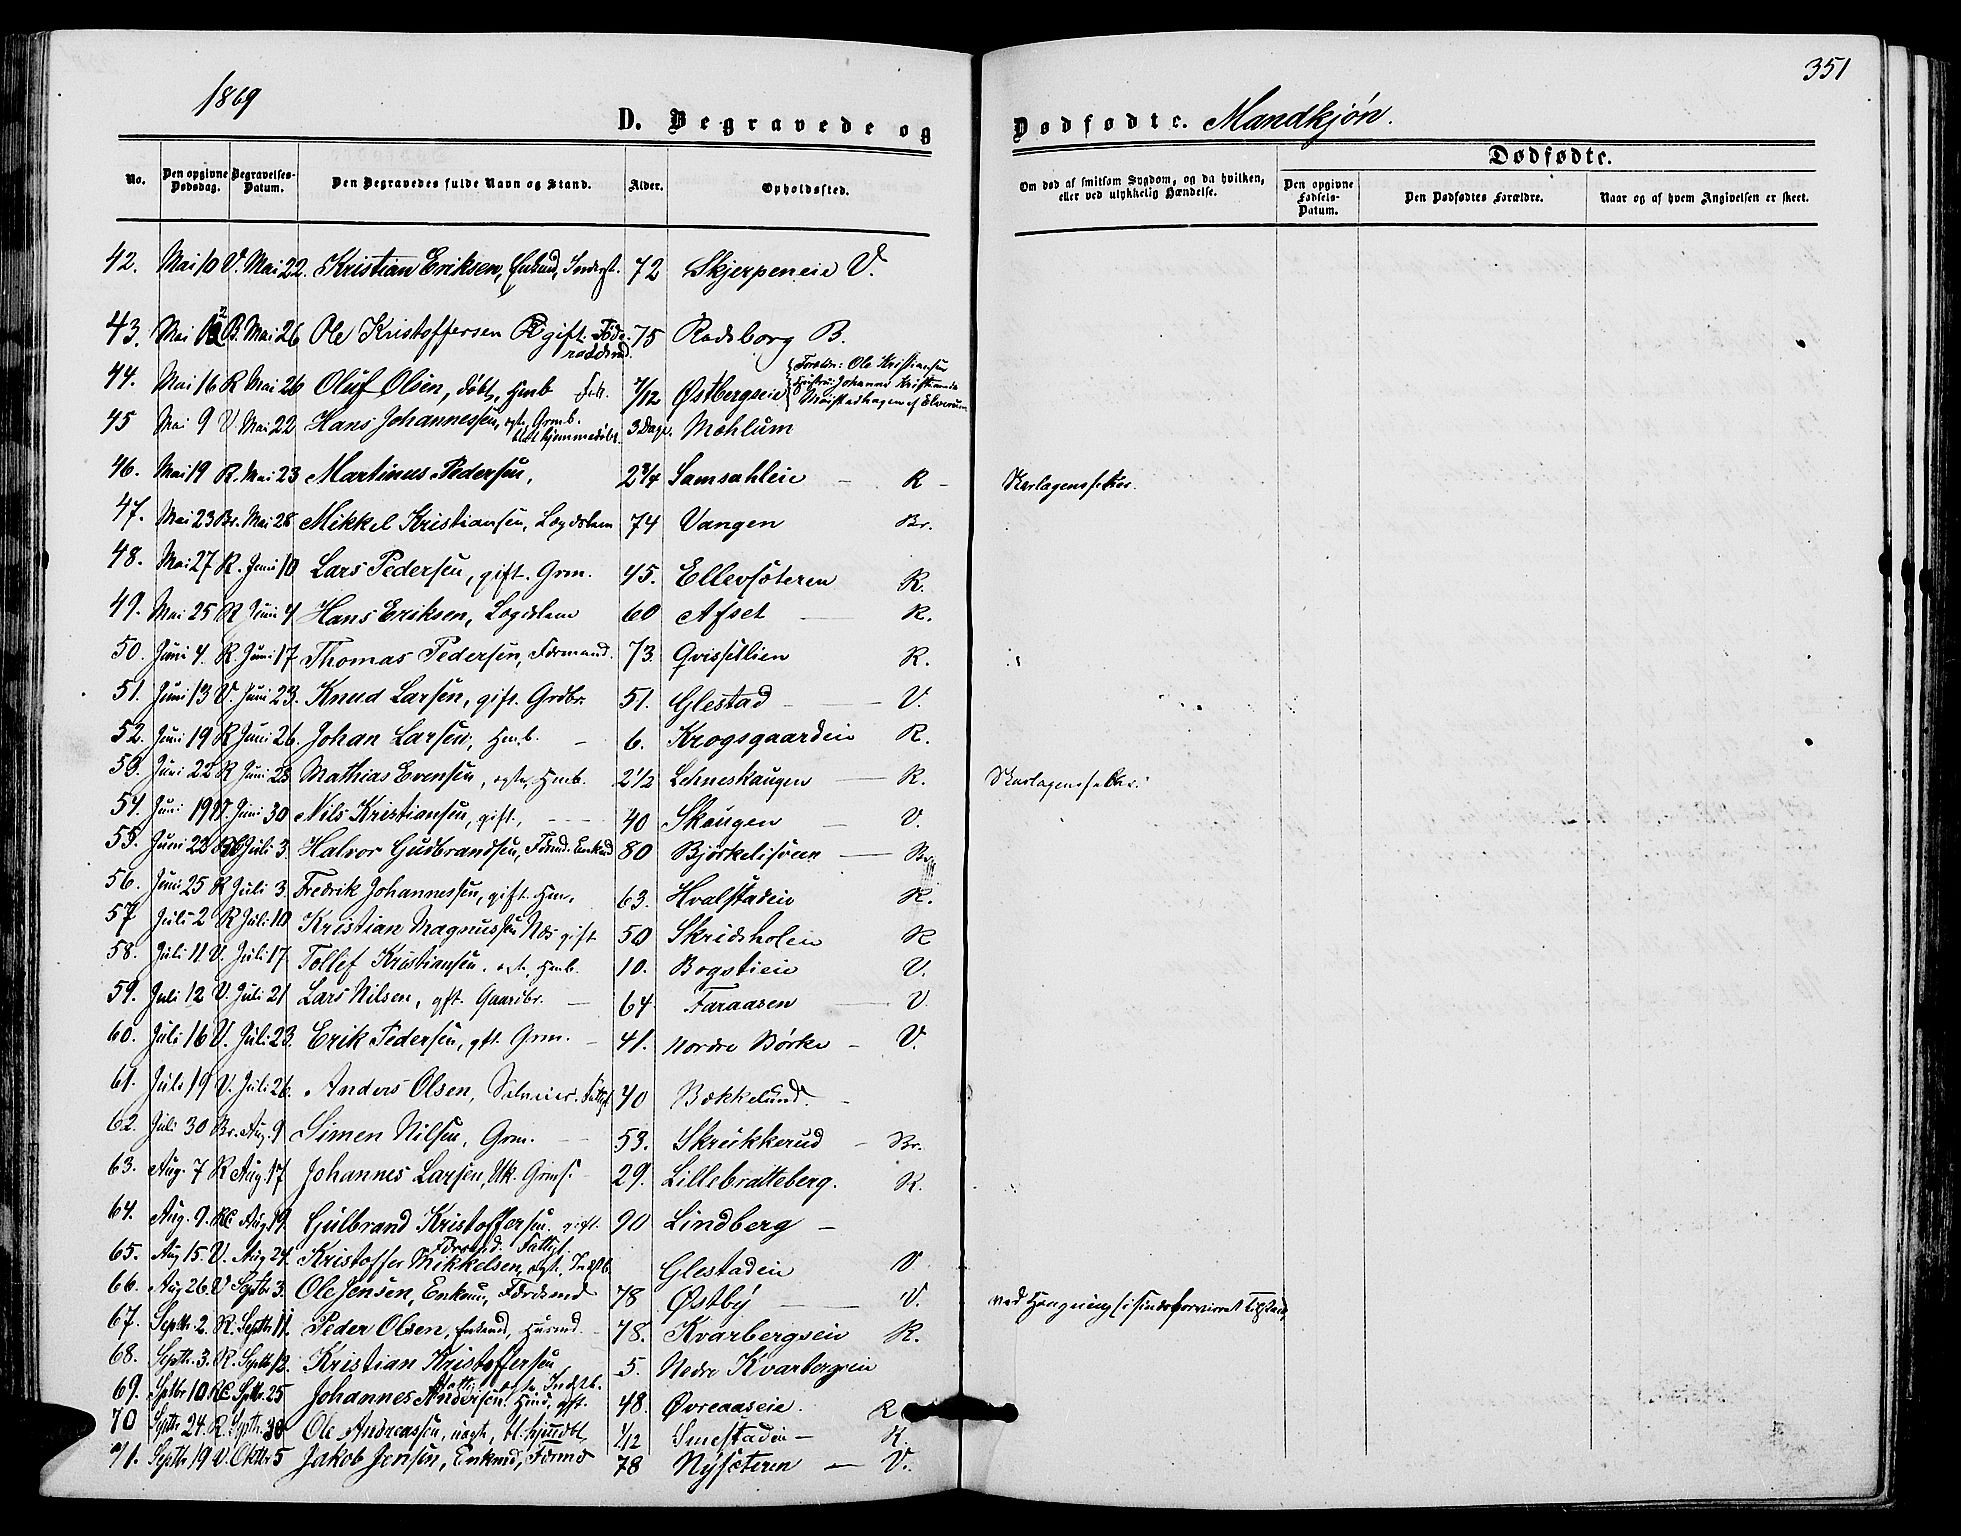 1869
351
D. Begravede og Dødfødte. Mandkjøn.
No. Den opgivne Dødsdag. Begravelses-Datum. Den Begravedes fulde Navn og Stand. Alder. Opholdssted. Om død af smitsom Sygdom, og da hvilken, eller ved ulykkelig Hændelse. Dødfødte. Den opgivne Fødsels-Datum. Den Dødfødtes Forældre. Naar og af hvem Angivelsen er skeet.
42. Mai 10 V. Mai 22. Kristian Eriksen, Enkmd, Inderst. 72 Skjerpeneie V.
43. Mai B. Mai 26 Ole Kristoffersen gift. Føde-raadsmd. 75 Rodsborg B.
44. Mai 16 R Mai 26 Oluf Olsen, døbt, Hmb 7/12 Østbergseie Forældre: Ole Kristiansen Hustru: Johanne Kristiansd. Moistadhagen af Elverum
45 Mai 9 V. Mai 22 Hans Johannessen, ægte, Grmb. hjemmedøbt 3 Dage. Mæhlum
46. Mai 19 R. Mai 23 Martinus Pedersen, 2 3/4 Samsahleie R Skarlagensfeber.
47. Mai 23 Br. Mai 28 Mikkel Kristiansen, Lægdslem 74 Vangen Br.
48. Mai 27 R. Juni 10 Lars Pedersen, gift. Grm. 45. Ellevsæteren R.
49. Mai 25 R Juni 4 Hans Eriksen, Lægdslem 60 Afset R.
50. Juni 4. R. Juni 17 Thomas Pedersen, Formand. 73. Qvissellien R.
51. Juni 13 V. Juni 23. Knud Larsen, gift. Grdbr. 51. Glestad V.
52. Juni 19 R Juni 26. Johan Larsen, Hmb. 6. Krogsgaardeie R.
53. Juni 22 R Juni 28 Mathias Evensen, ægte, Hmb. 2 1/2 Lehneskaugen R. Skarlagensfeber.
54. Juni 19 V. Juni 30 Nils Kristiansen, gift, 40 Skaugen V.
55. Juni 23 Juli 3. Halvor Gudbrandsen, Førmd. Enkmd 80 Bjørkelisveen Br.
56. Juni 25 R Juli 3. Fredrik Johannessen, gift. Hm. 63. Hvalstadeie R.
57 Juli 2 R Juli 10 Kristian Magnussen Næs gift 50 Skridsholen R
58. Juli 11 V. Juli 17. Tollef Kristiansen, ægte, Hmb. 10. Bogstieie V.
59. Juli 12 V. Juli 21 Lars Nilsen, gft. Gaardbr. 64 Faraasen V
60. Juli 16 V. Juli 23. Erik Pedersen, gft. Grm. 41. Nordre Børke V.
61. Juli 19 V. Juli 26. Anders Olsen, Fattigl. 40 Bækkelund.
62. Juli 30 Br. Aug. 9 Simen Nilsen, Grm. 53. Skreikkerud Br.
63. Aug. 7 R Aug. 17 Johannes Larsen, Uk. Grms. 29. Lillebratteberg. R.
64. Aug. 9. Aug. 19. Gulbrand Kristoffersen. gift. Førmd. Fattigl. 90 Lindberg
65. Aug 15. V. Aug 24. Kristoffer Mikkelsen, Indstb. Glestadeie V
66. Aug 26. V Septbr 3. Ole Jensen, Enkem., Førdsmd 78 Østby V. ved Hængning i sindsforvirret Tilstand,
67. Septbr. 2. R. Septbr 11. Peder Olsen, Enkmd, Husmd. 78. Kvarbergseie R.
68. Septbr. 3. R. Septbr 12. Kristian Kristoffersen Fattigl. ægte. Indstb. 5. Nedre Kvarbergseie
69. Septbr 10 Septbr. 25 Johannes Andersen. Hmd. gft. 48. Øvreaaseie. R
70 Septbr 24. R. Septbr. 30 Ole Andreassen, uægte, bl. hjmdbt. 1/12 Smestadeie R.
71. Septbr 19 V. Oktbr 5 Jakob Jensen, Enkmd, Førmd 78 Nysæteren V.